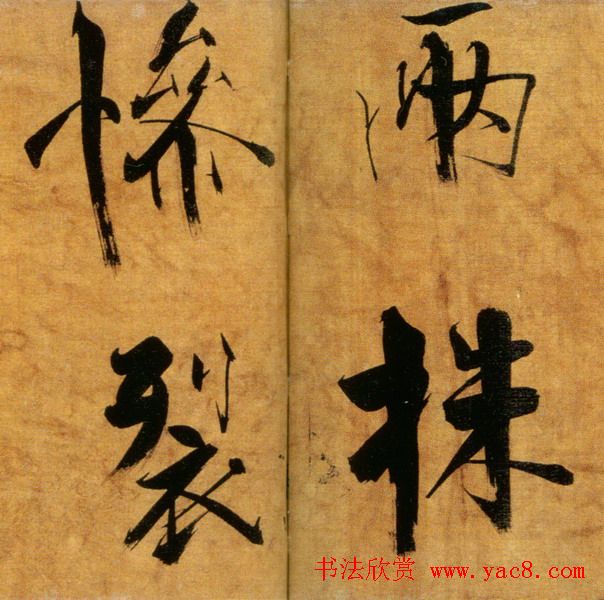 兩株
慘裂
书法欣赏 www.yac8.com